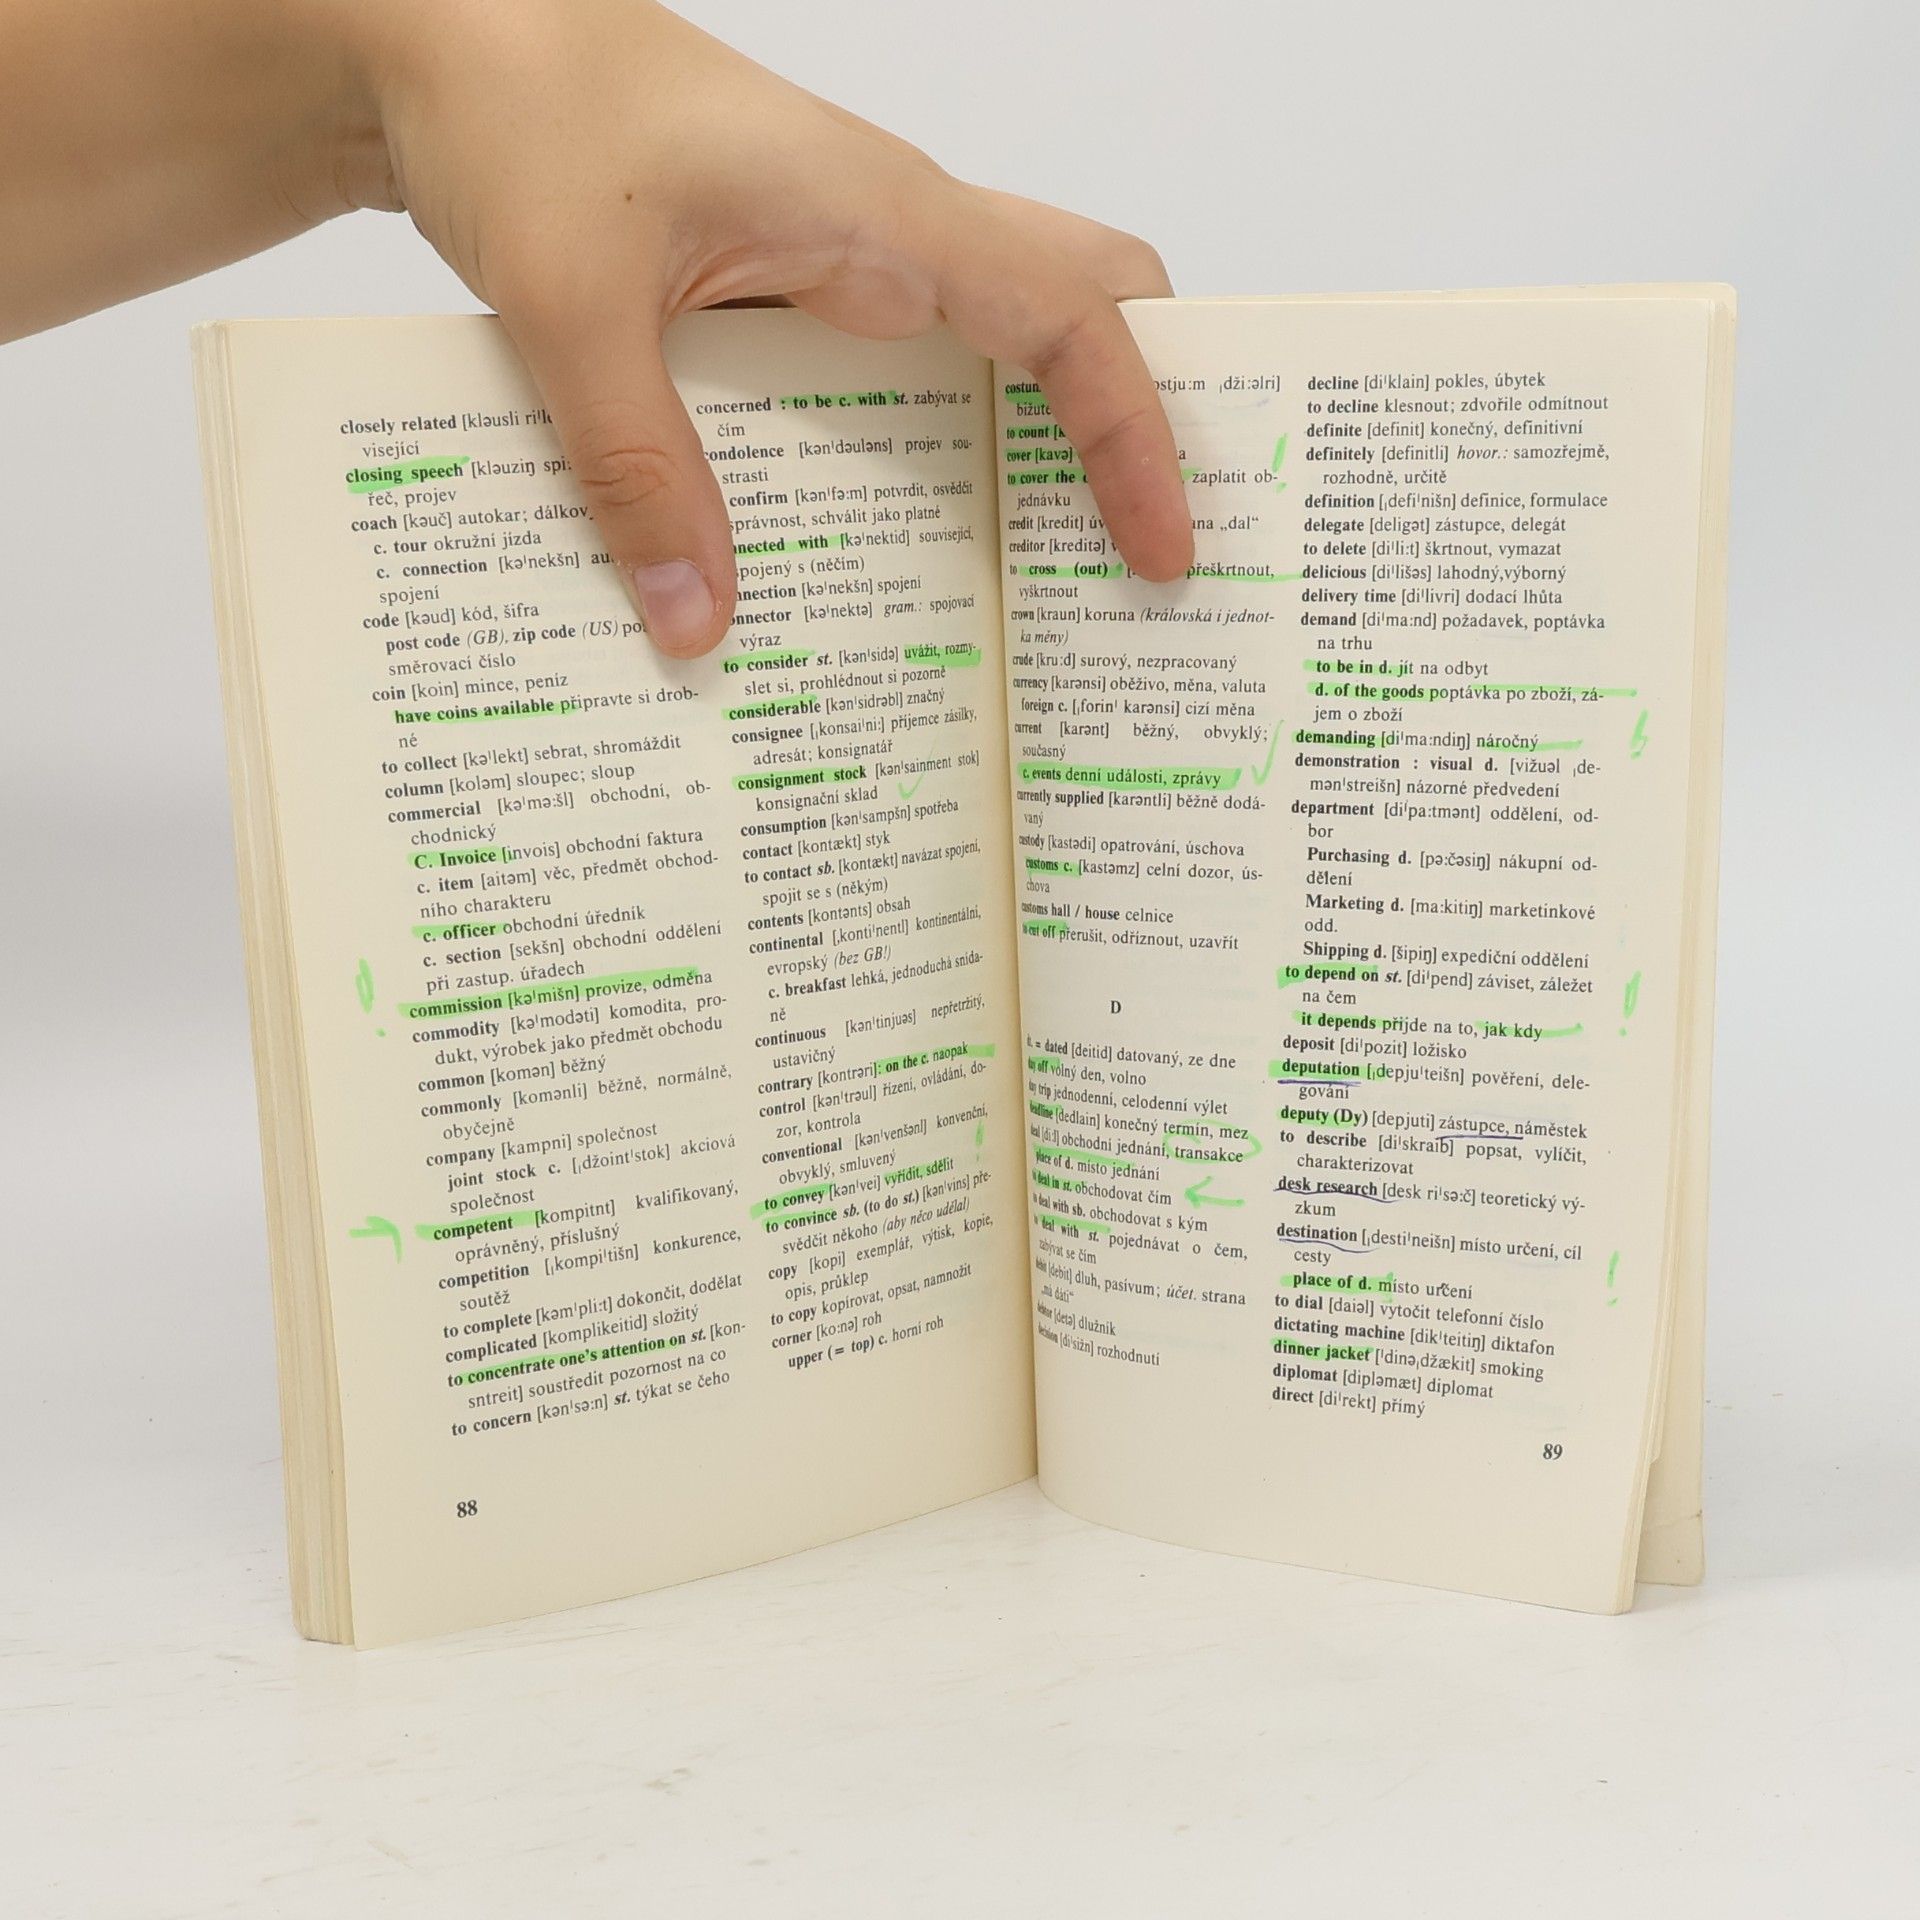 closely related [kləusli
visející
closing speech [kləuziŋ
řeč, projev
coach [kəuč] autokar;
c. tour okružní jízda
c. connection [kəˈnekšn]
spojení
code [kəud] kód, šifra
post code (GB), zip code (US)
směrovací číslo
coin [koin] mince, peníz
have coins available připravte si drob-
né
to collect [kəˈlekt] sebrat, shromáždit
column [koləm] sloupec; sloup
commercial [kəˈmə:šl] obchodní, ob-
chodnický
C. Invoice [invois] obchodní faktura
c. item [aitəm] věc, předmět obchod-
ního charakteru
c. officer obchodní úředník
c. section [sekšn] obchodní oddělení
při zastup. úřadech
commission [kəˈmišn] provize, odměna
commodity [kəˈmodəti] komodita, pro-
dukt, výrobek jako předmět obchodu
common [komən] běžný
commonly [komənli] běžně, normálně,
obyčejně
company [kampni] společnost
joint stock c. [ˌdžointˈstok] akciová
společnost
competent [kompitnt] kvalifikovaný,
oprávněný, příslušný
competition [ˌkompiˈtišn] konkurence,
soutěž
to complete [kəmˈpli:t] dokončit, dodělat
complicated [komplikeitid] složitý
to concentrate one's attention on st. [kon-
sntreit] soustředit pozornost na co
to concern [kənˈsə:n] st. týkat se čeho
88
concerned : to be c. with st. zabývat se
čím
condolence [kənˈdəuləns] projev sou-
strasti
confirm [kənˈfə:m] potvrdit, osvědčit
správnost, schválit jako platné
with [kəˈnektid] související,
spojený s (něčím)
[kəˈnekšn] spojení
[kəˈnektə] gram.: spojovací
výraz
to consider st. [kənˈsidə] uvážit, rozmy-
slet si, prohlédnout si pozorně
considerable [kənˈsidrəbl] značný
consignee [ˌkonsaiˈni:] příjemce zásilky,
adresát; konsignatář
consignment stock [kənˈsainment stok]
konsignační sklad
consumption [kənˈsampšn] spotřeba
contact [kontækt] styk
to contact sb. [kontækt] navázat spojení,
spojit se s (někým)
contents [kontənts] obsah
continental [ˌkontiˈnentl] kontinentální,
evropský (bez GB!)
c. breakfast lehká, jednoduchá snída-
ně
continuous [kənˈtinjuəs] nepřetržitý,
ustavičný
contrary [kontrəri]: on the c. naopak
control [kənˈtrəul] řízení, ovládání, do-
zor, kontrola
conventional [kənˈvenšənl] konvenční,
obvyklý, smluvený
to convey [kənˈvei] vyřídit, sdělit
to convince sb. (to do st.) [kənˈvins] pře-
svědčit někoho (aby něco udělal)
copy [kopi] exemplář, výtisk, kopie,
opis, průklep
to copy kopírovat, opsat, namnožit
corner [ko:nə] roh
upper (= top) c. horní roh
ˌdži:əlri]
to count
cover [kavə]
to cover the zaplatit ob-
jednávku
credit [kredit] „dal“
creditor [kreditə]
to cross (out) přeškrtnout,
vyškrtnout
crown [kraun] koruna (královská i jednot-
ka měny)
crude [kru:d] surový, nezpracovaný
currency [karənsi] oběživo, měna, valuta
foreign c. [ˌforinˈ karənsi] cizí měna
current [karənt] běžný, obvyklý;
současný
c. events denní události, zprávy
currently supplied [karəntli] běžně dodá-
vaný
custody [kastədi] opatrování, úschova
customs c. [kastəmz] celní dozor, ús-
chova
customs hall / house celnice
to cut off přerušit, odříznout, uzavřít
D
d. = dated [deitid] datovaný, ze dne
day off volný den, volno
day trip jednodenní, celodenní výlet
deadline [dedlain] konečný termín, mez
deal [di:l] obchodní jednání, transakce
place of d. místo jednání
to deal in st. obchodovat čím
to deal with sb. obchodovat s kým
to deal with st. pojednávat o čem,
zabývat se čím
debit [debit] dluh, pasívum; účet. strana
„má dáti“
debtor [detə] dlužník
decision [diˈsižn] rozhodnutí
decline [diˈklain] pokles, úbytek
to decline klesnout; zdvořile odmítnout
definite [definit] konečný, definitivní
definitely [definitli] hovor.: samozřejmě,
rozhodně, určitě
definition [ˌdefiˈnišn] definice, formulace
delegate [deligət] zástupce, delegát
to delete [diˈli:t] škrtnout, vymazat
delicious [diˈlišəs] lahodný,výborný
delivery time [diˈlivri] dodací lhůta
demand [diˈma:nd] požadavek, poptávka
na trhu
to be in d. jít na odbyt
d. of the goods poptávka po zboží, zá-
jem o zboží
demanding [diˈma:ndiŋ] náročný
demonstration : visual d. [vižuəl ˌde-
mənˈstreišn] názorné předvedení
department [diˈpa:tmənt] oddělení, od-
bor
Purchasing d. [pə:čəsiŋ] nákupní od-
dělení
Marketing d. [ma:kitiŋ] marketinkové
odd.
Shipping d. [šipiŋ] expediční oddělení
to depend on st. [diˈpend] záviset, záležet
na čem
it depends přijde na to, jak kdy
deposit [diˈpozit] ložisko
deputation [ˌdepjuˈteišn] pověření, dele-
gování
deputy (Dy) [depjuti] zástupce, náměstek
to describe [diˈskraib] popsat, vylíčit,
charakterizovat
desk research [desk riˈsə:č] teoretický vý-
zkum
destination [ˌdestiˈneišn] místo určení, cíl
cesty
place of d. místo určení
to dial [daiəl] vytočit telefonní číslo
dictating machine [dikˈteitiŋ] diktafon
dinner jacket [ˈdinəˌdžækit] smoking
diplomat [dipləmæt] diplomat
direct [diˈrekt] přímý
89